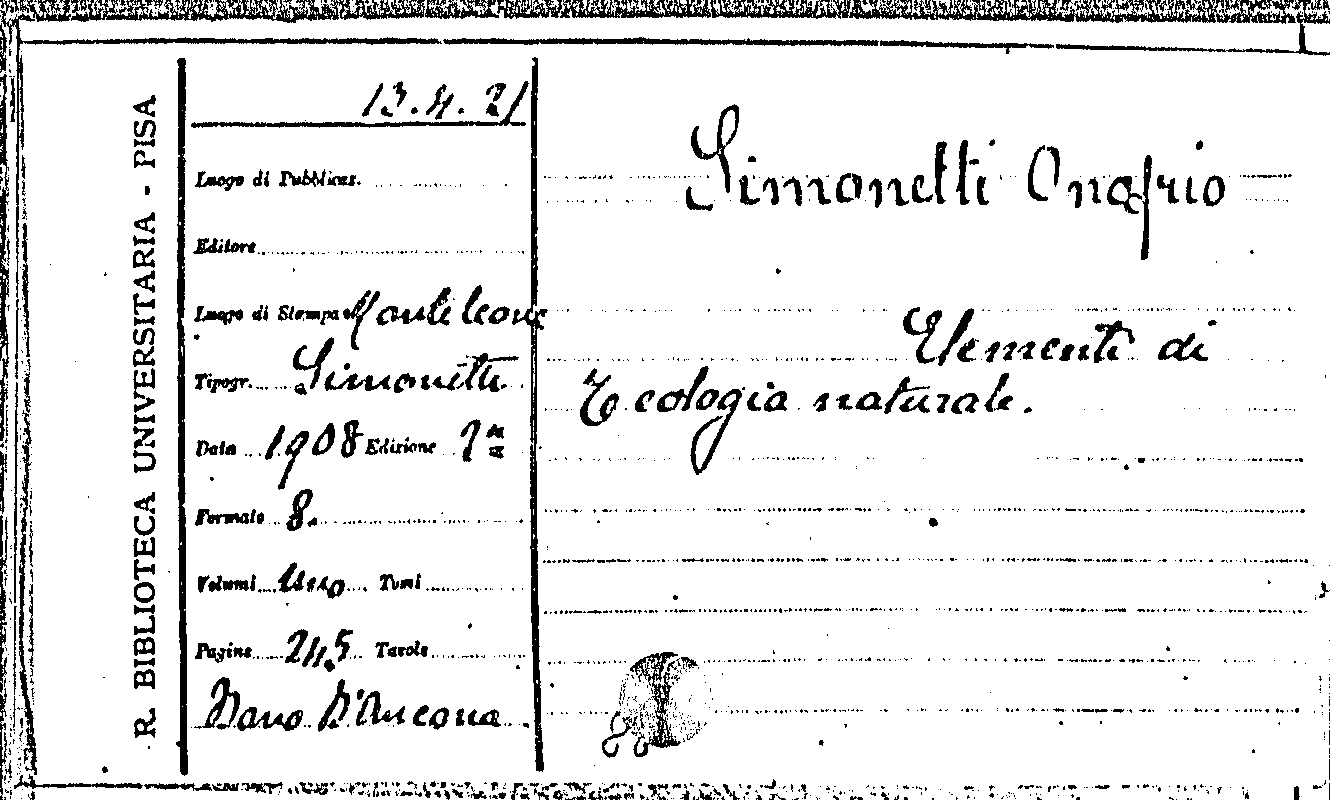 R. BIBLIOTECA UNIVERSITARIA - PISA
13.4.21
Luogo di Pubblicaz.
Editore
Luogo di Stampa Monteleone
Tipogr. Simonetti
Data 1908 Edizione 1ª
Formato 8.
Volumi Uno Tomi
Pagine 245 Tavole
Dono D'Ancona.
Simonetti Onofrio
Elementi di
Ecologia naturale.